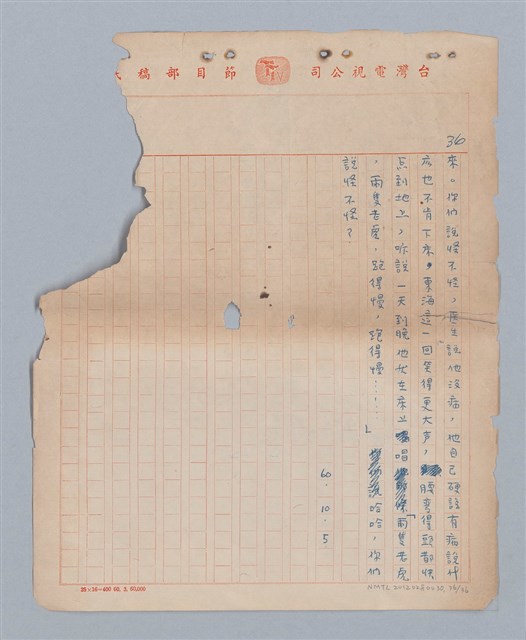 台灣電視公司 TTV 節目部稿
36
來。你們說怪不怪，医生說他沒病，他自己硬說有病說什
庅也不肯下來。東海這一回笑得更大声，腰弯得頭都快
点到地上，听說一天到晚他在床上唱「兩隻老虎
，兩隻老虎，跑得慢，跑得慢……」哈哈，你們
說怪不怪？
60.10.5
25×16=400 60. 3. 60,000